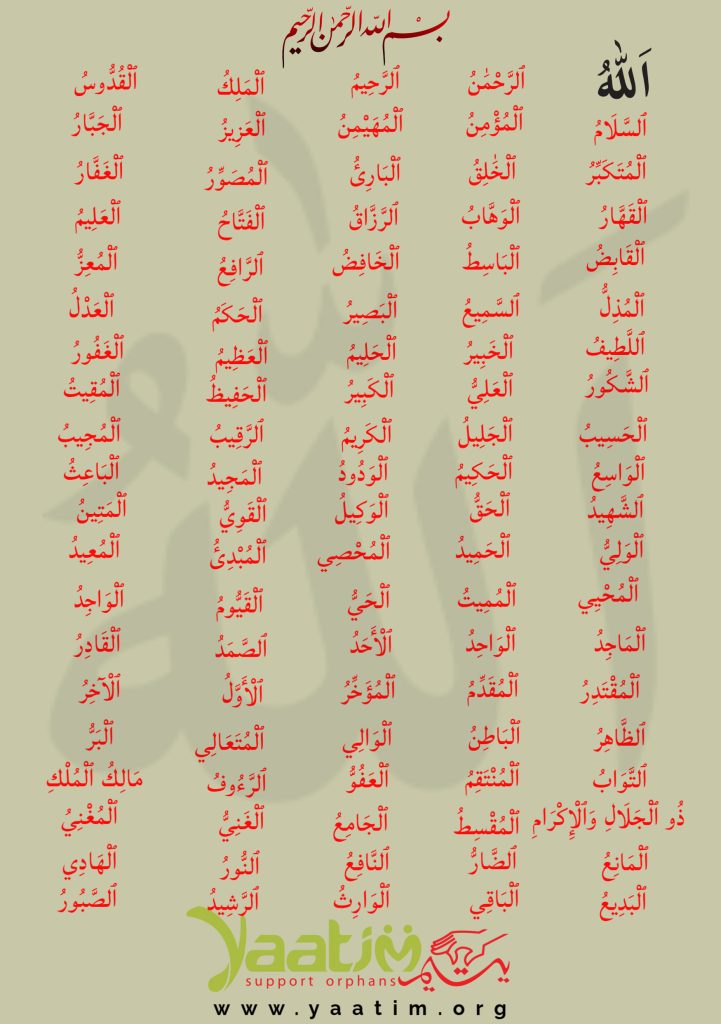 بسم الله الرحمن الرحيم
اَللّٰهُ ٱلرَّحْمَٰنُ ٱلرَّحِيمُ ٱلْمَلِكُ ٱلْقُدُّوسُ
ٱلسَّلَامُ ٱلْمُؤْمِنُ ٱلْمُهَيْمِنُ ٱلْعَزِيزُ ٱلْجَبَّارُ
ٱلْمُتَكَبِّرُ ٱلْخَٰلِقُ ٱلْبَارِئُ ٱلْمُصَوِّرُ ٱلْغَفَّارُ
ٱلْقَهَّارُ ٱلْوَهَّابُ ٱلرَّزَّاقُ ٱلْفَتَّاحُ ٱلْعَلِيمُ
ٱلْقَابِضُ ٱلْبَاسِطُ ٱلْخَافِضُ ٱلرَّافِعُ ٱلْمُعِزُّ
ٱلْمُذِلُّ ٱلسَّمِيعُ ٱلْبَصِيرُ ٱلْحَكَمُ ٱلْعَدْلُ
ٱللَّطِيفُ ٱلْخَبِيرُ ٱلْحَلِيمُ ٱلْعَظِيمُ ٱلْغَفُورُ
ٱلشَّكُورُ ٱلْعَلِيُّ ٱلْكَبِيرُ ٱلْحَفِيظُ ٱلْمُقِيتُ
ٱلْحَسِيبُ ٱلْجَلِيلُ ٱلْكَرِيمُ ٱلرَّقِيبُ ٱلْمُجِيبُ
ٱلْوَاسِعُ ٱلْحَكِيمُ ٱلْوَدُودُ ٱلْمَجِيدُ ٱلْبَاعِثُ
ٱلشَّهِيدُ ٱلْحَقُّ ٱلْوَكِيلُ ٱلْقَوِيُّ ٱلْمَتِينُ
ٱلْوَلِيُّ ٱلْحَمِيدُ ٱلْمُحْصِي ٱلْمُبْدِئُ ٱلْمُعِيدُ
ٱلْمُحْيِي ٱلْمُمِيتُ ٱلْحَيُّ ٱلْقَيُّومُ ٱلْوَاجِدُ
ٱلْمَاجِدُ ٱلْوَاحِدُ ٱلْأَحَدُ ٱلصَّمَدُ ٱلْقَادِرُ
ٱلْمُقْتَدِرُ ٱلْمُقَدِّمُ ٱلْمُؤَخِّرُ ٱلْأَوَّلُ ٱلْآخِرُ
ٱلظَّاهِرُ ٱلْبَاطِنُ ٱلْوَالِي ٱلْمُتَعَالِي ٱلْبَرُّ
ٱلتَّوَابُ ٱلْمُنْتَقِمُ ٱلْعَفُوُّ ٱلرَّءُوفُ مَالِكُ ٱلْمُلْكِ
ذُو ٱلْجَلَالِ وَٱلْإِكْرَامِ ٱلْمُقْسِطُ ٱلْجَامِعُ ٱلْغَنِيُّ ٱلْمُغْنِيُ
ٱلْمَانِعُ ٱلضَّارُّ ٱلنَّافِعُ ٱلنُّورُ ٱلْهَادِي
ٱلْبَدِيعُ ٱلْبَاقِي ٱلْوَارِثُ ٱلرَّشِيدُ ٱلصَّبُورُ
yaatim يتيم
support orphans
www.yaatim.org